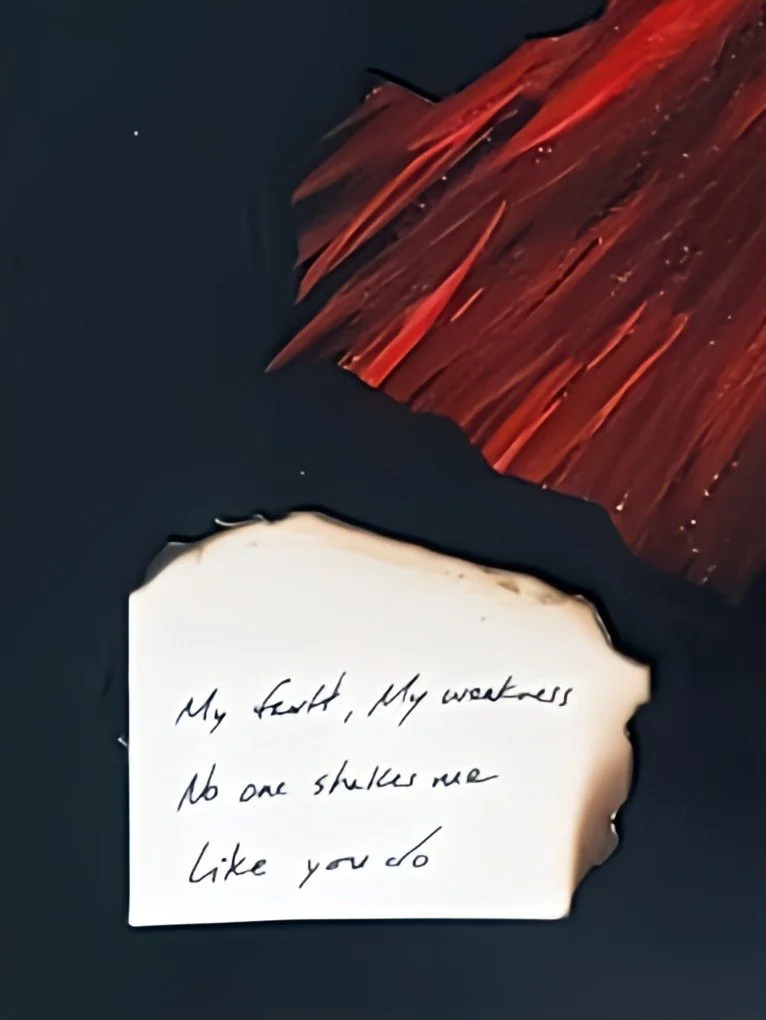 My fault, My weakness
No one shakes me
Like you do